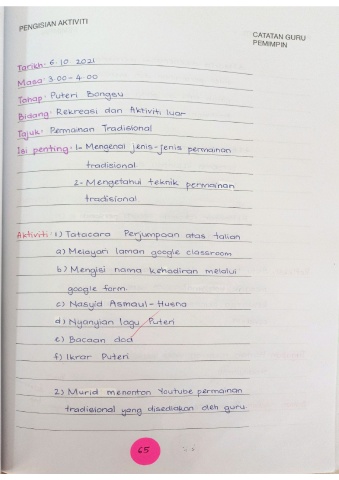 PENGISIAN AKTIVITI
CATATAN GURU
PEMIMPIN
Tarikh: 6.10.2021
Masa: 3.00-4.00
Tahap: Puteri Bongsu
Bidang: Rekreasi dan Aktiviti luar
Tajuk: Permainan Tradisional
Isi penting: 1- Mengenai jenis-jenis permainan
tradisional
2- Mengetahui teknik permainan
tradisional
Aktiviti: 1) Tatacara Perjumpaan atas talian
a) Melayari laman google classroom
b) Mengisi nama kehadiran melalui
google form
c) Nasyid Asmaul-Husna
d) Nyanyian lagu Puteri
e) Bacaan doa
f) Ikrar Puteri
2) Murid menonton Youtube permainan
tradisional yang disediakan oleh guru.
65